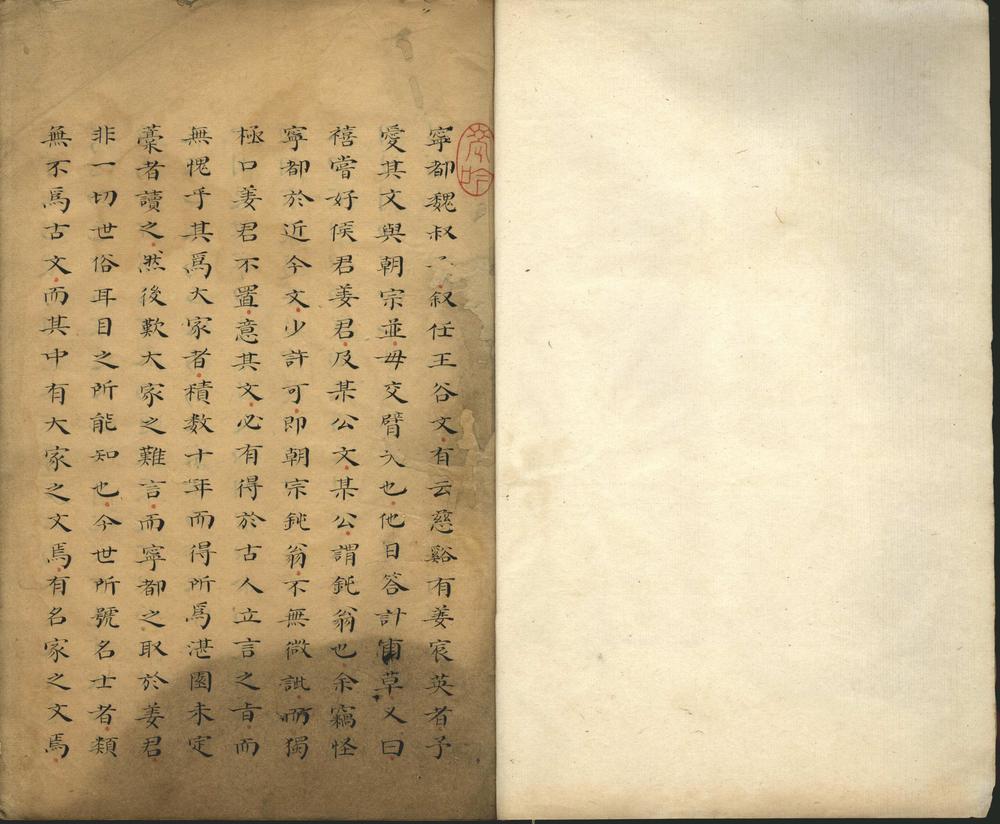 寧都魏叔叙任王谷文有云慈谿有姜宸英者予
愛其文與朝宗並毋交臂失也他日答計甫草又曰
禧嘗好侯君姜君及某公文某公謂鈍翁也余竊怪
寧都於近今文少許可即朝宗鈍翁不無微訿而獨
極口姜君不置意其文必有得於古人立言之旨而
無愧乎其爲大家者積数十年而得所爲湛園未定
藁者讀之然後歎大家之難言而寧都之取於姜君
非一切世俗耳目之所能知也今世所號名士者類
無不爲古文而其中有大家之文焉有名家之文焉